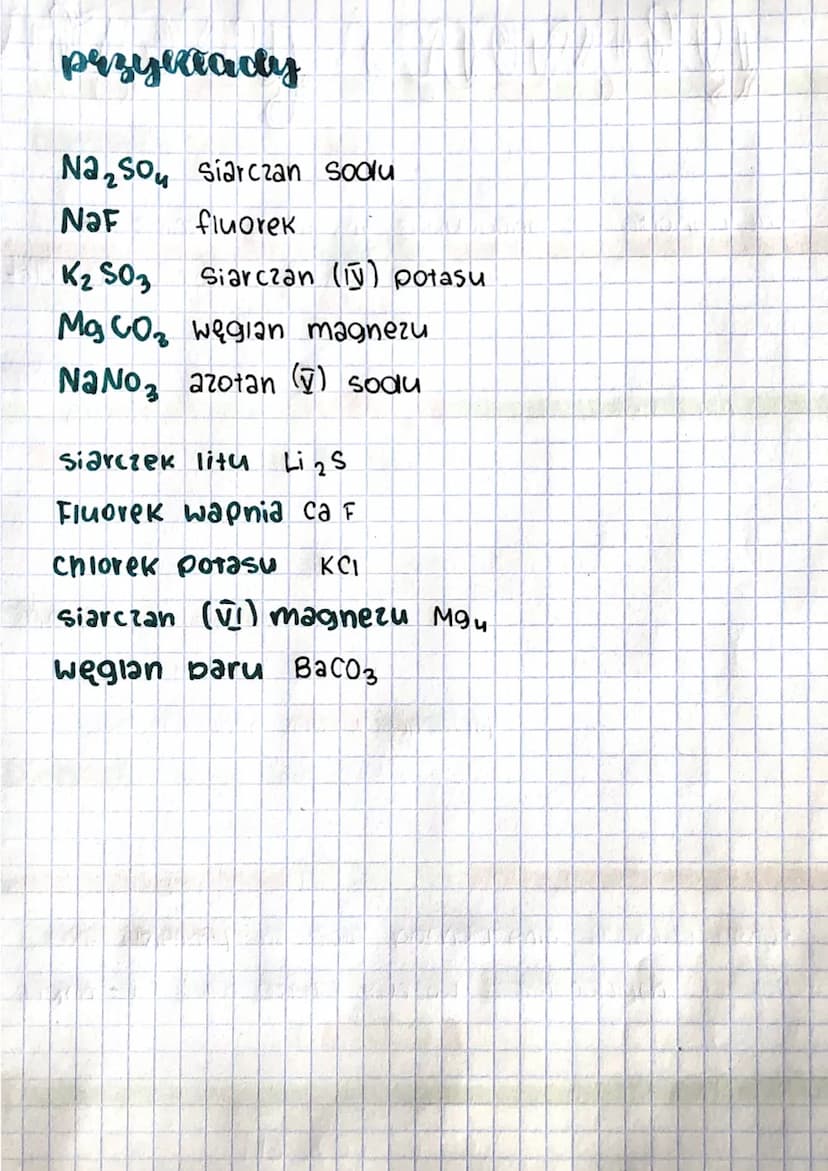 przykłady
Na₂SO₄ siarczan sodu
NaF fluorek
K₂SO₃ siarczan (IV) potasu
MgCO₃ węglan magnezu
NaNO₃ azotan (V) sodu
siarczek litu Li₂S
Fluorek wapnia CaF
chlorek potasu KCl
siarczan (VI) magnezu Mg₄
węglan baru BaCO₃